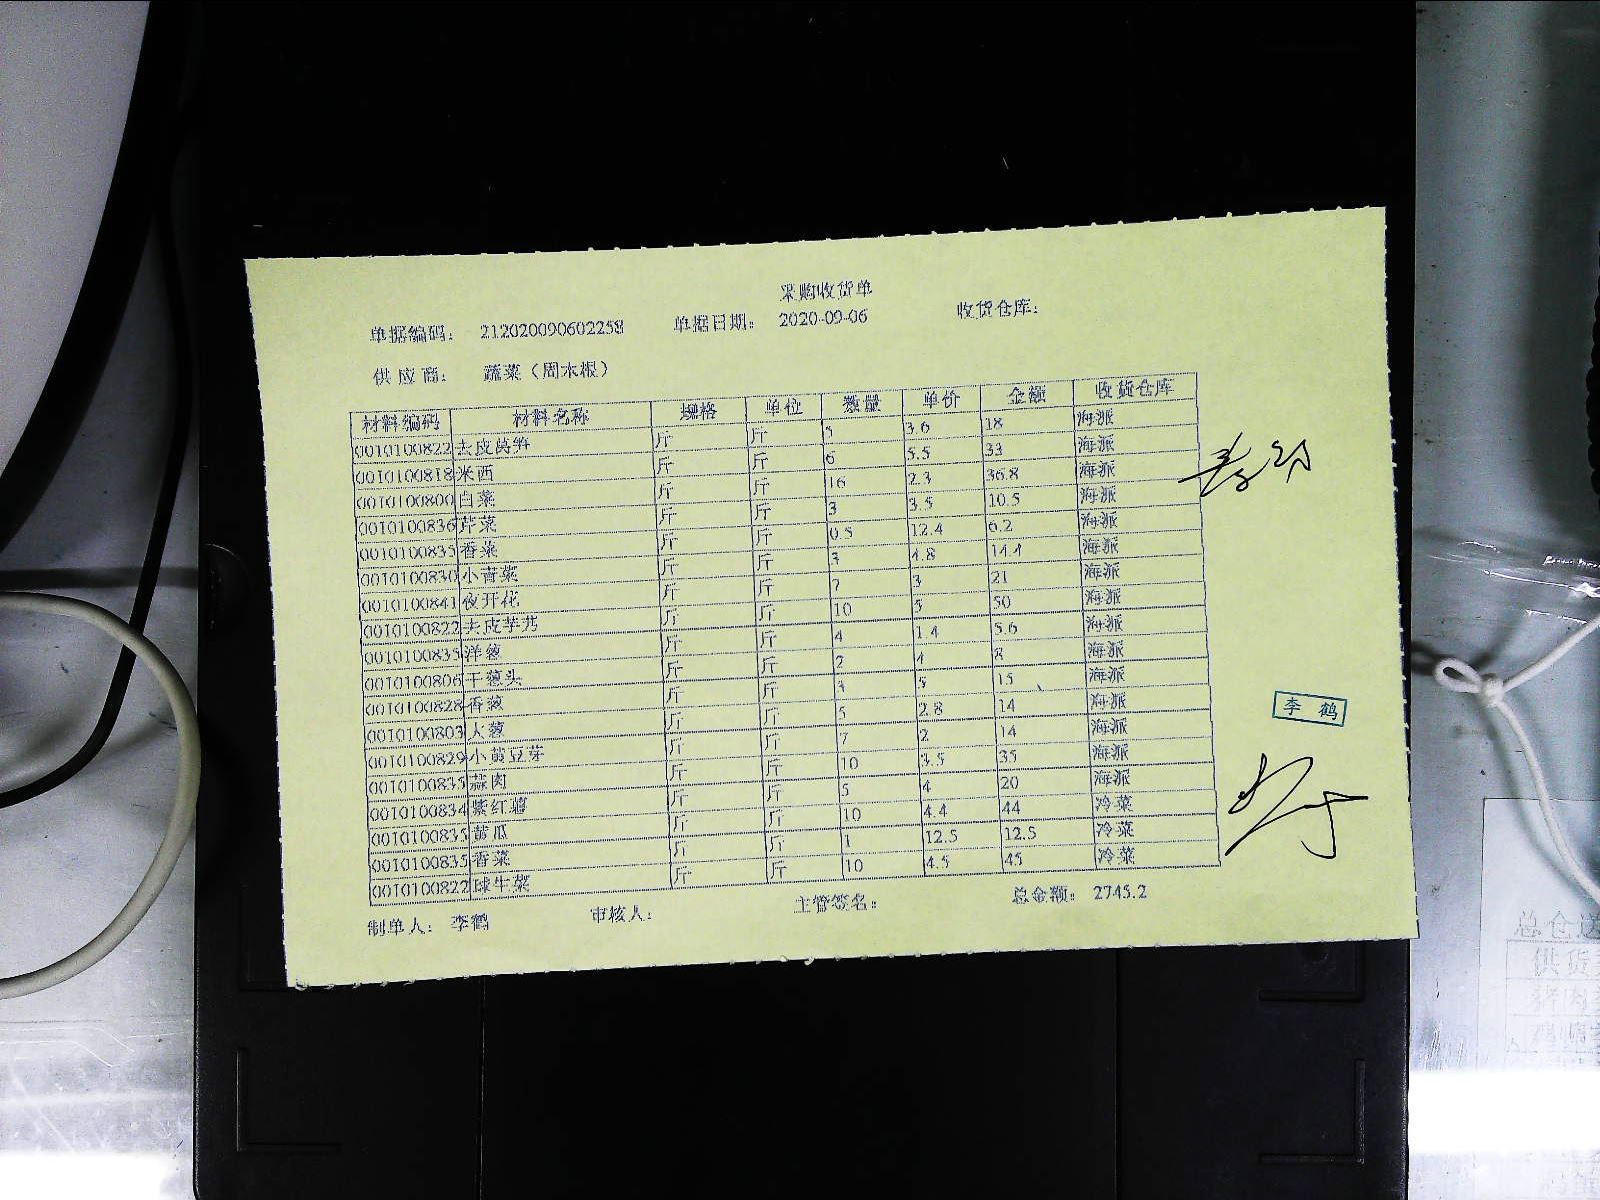 采购收货单
单据编码： 212020090602258 单据日期： 2020-09-06 收货仓库：
供应商： 蔬菜（周木根）
材料编码 材料名称 规格 单位 数量 单价 金额 收货仓库
0010100822 去皮莴笋 斤 斤 5 3.6 18 海派
0010100818 米西 斤 斤 6 5.5 33 海派
0010100800 白菜 斤 斤 16 2.3 36.8 海派
0010100836 芹菜 斤 斤 3 3.5 10.5 海派
0010100835 香菜 斤 斤 0.5 12.4 6.2 海派
0010100830 小青菜 斤 斤 3 4.8 14.4 海派
0010100841 夜开花 斤 斤 7 3 21 海派
0010100822 去皮芋艿 斤 斤 10 5 50 海派
0010100835 洋葱 斤 斤 4 1.4 5.6 海派
0010100806 干葱头 斤 斤 2 4 8 海派
0010100828 香葱 斤 斤 3 5 15 海派
0010100803 大葱 斤 斤 5 2.8 14 海派
0010100829 小黄豆芽 斤 斤 7 2 14 海派
0010100835 蒜肉 斤 斤 10 3.5 35 海派
0010100834 紫红薯 斤 斤 5 4 20 海派
0010100835 黄瓜 斤 斤 10 4.4 44 冷菜
0010100835 香菜 斤 斤 1 12.5 12.5 冷菜
0010100822 球生菜 斤 斤 10 4.5 45 冷菜
制单人： 李鹤 审核人： 主管签名： 总金额： 2745.2
李鹤
总仓送
供货